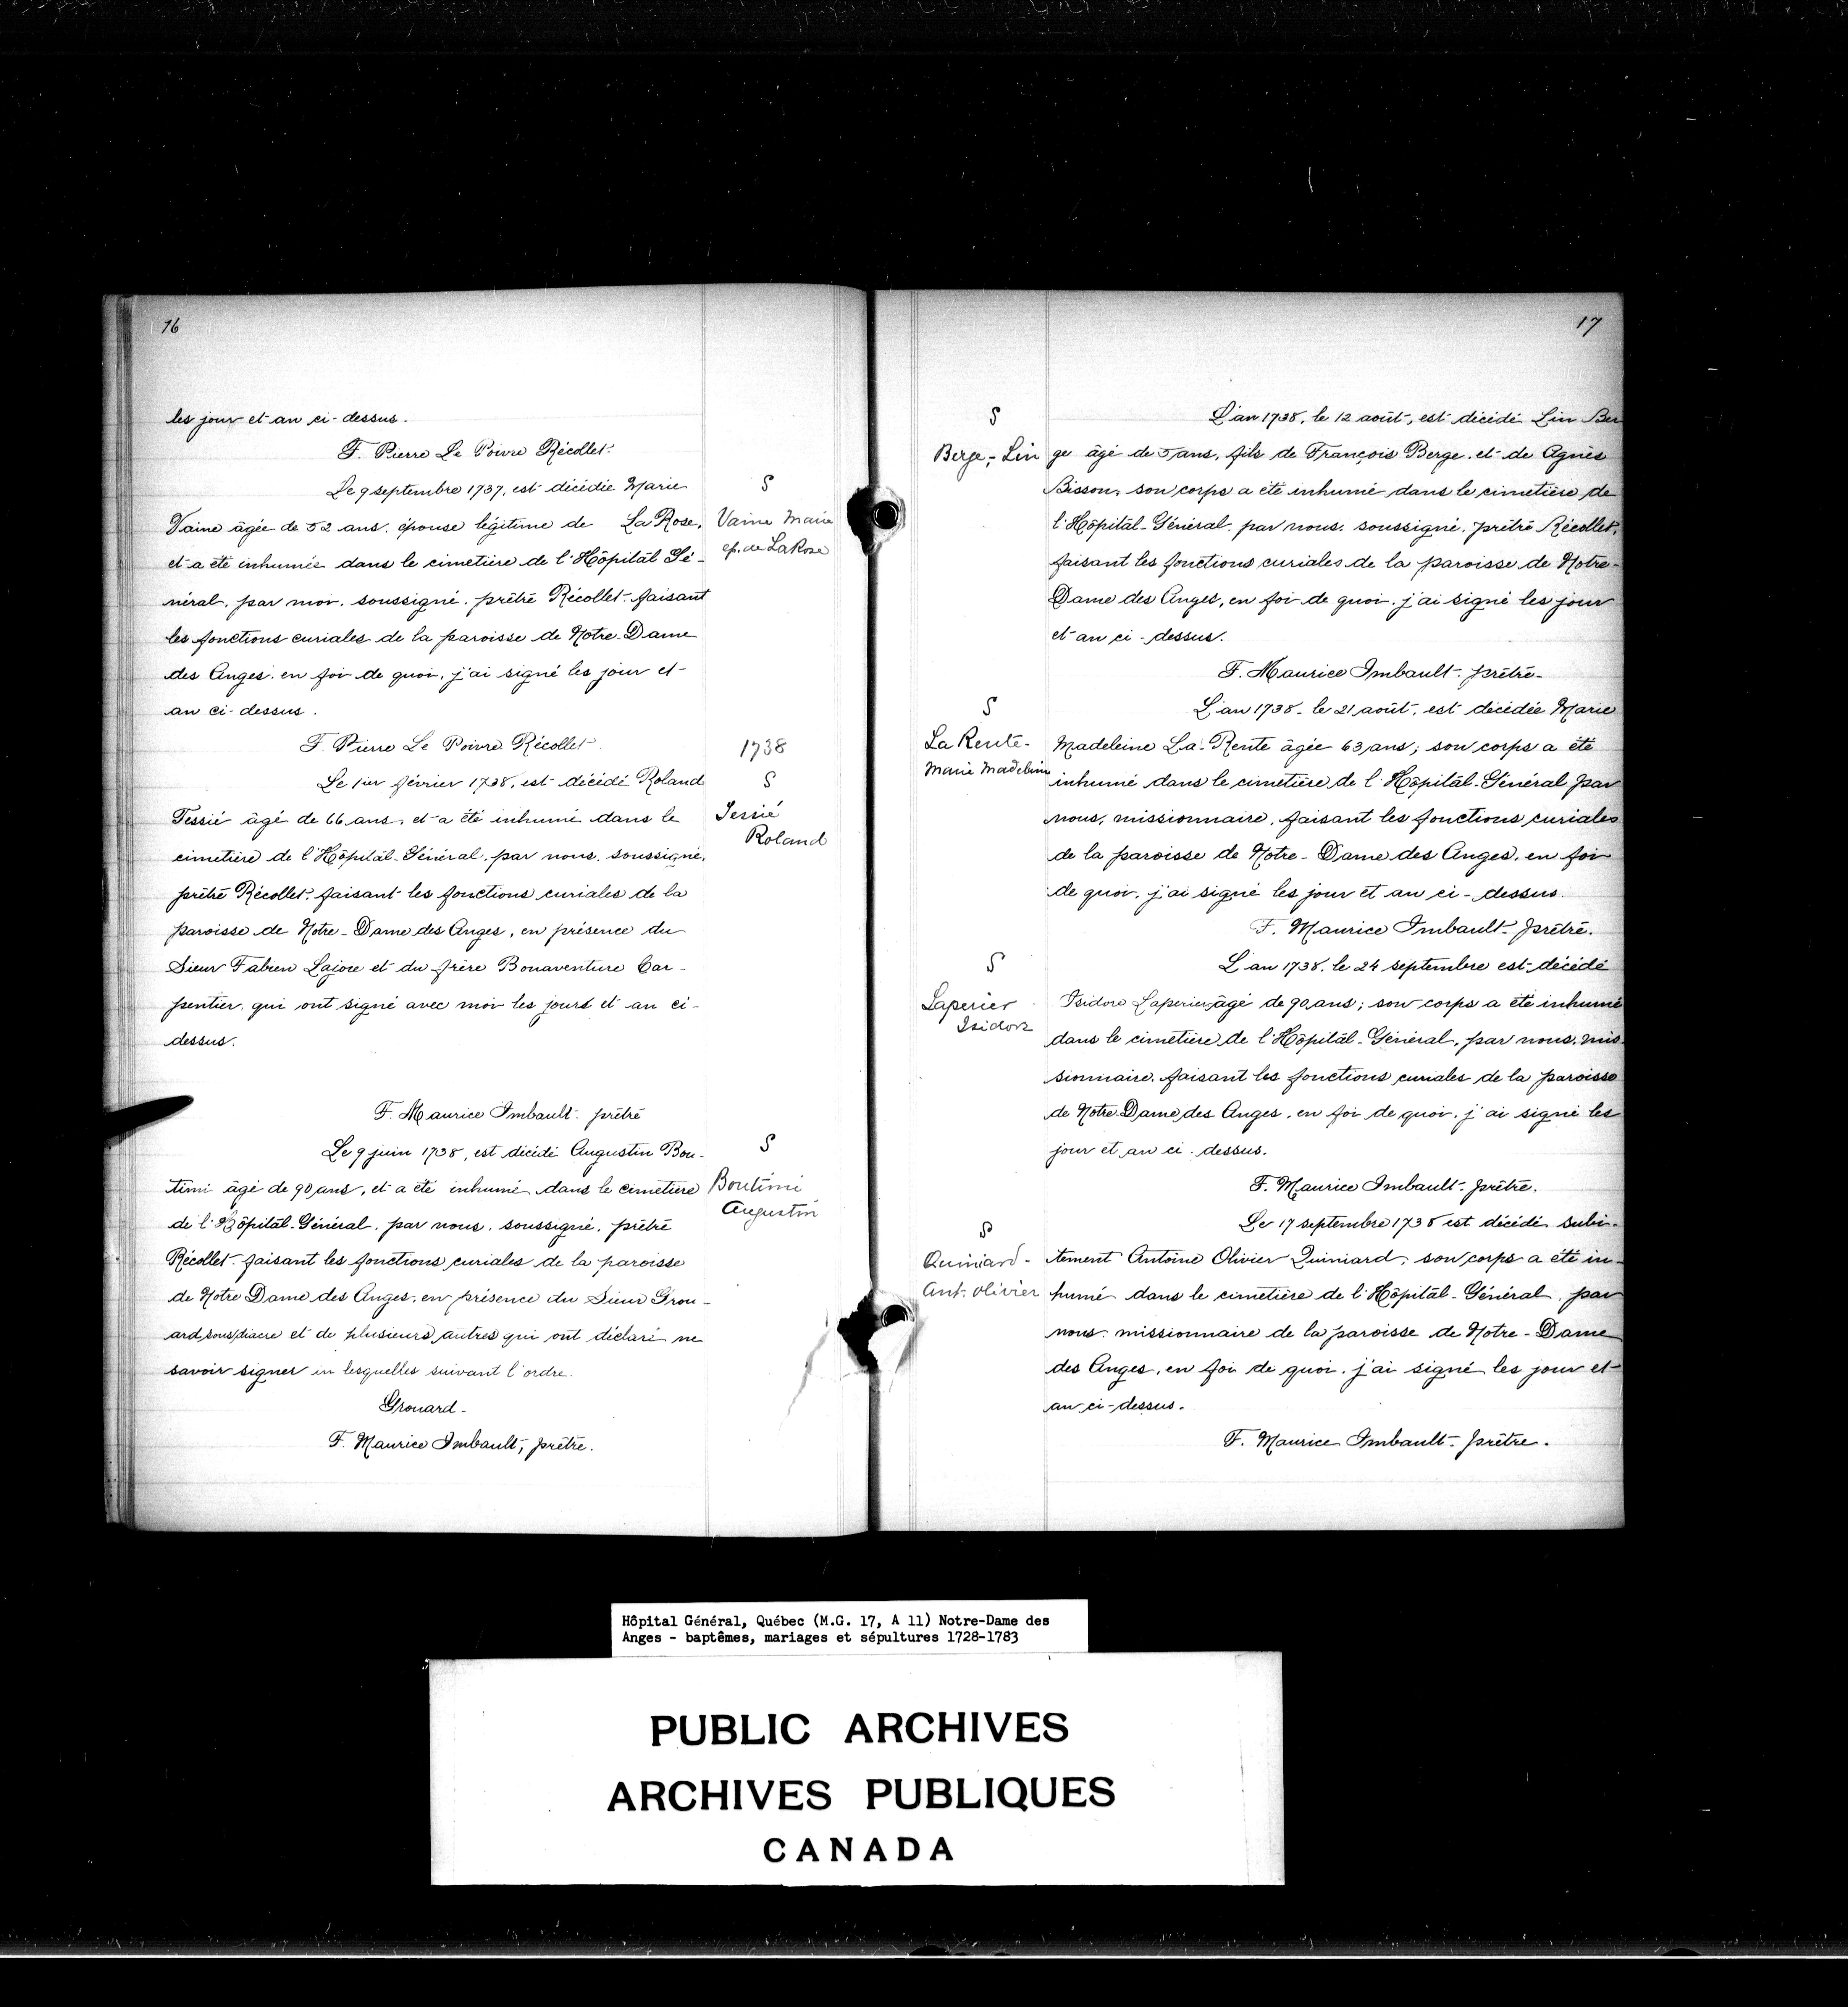 16
les jour et an ci-dessus.
F. Pierre Le Poivre Récollet.
Le 9 septembre 1737, est décédée Marie
S
Vaine âgée de 52 ans, épouse légitime de La Rose,
Vaine Marie
et a été inhumée dans le cimetière de l'Hôpital Gé-
ép. de LaRose
néral, par moi, soussigné, prêtre Récollet faisant
les fonctions curiales de la paroisse de Notre-Dame
des Anges. en foi de quoi, j'ai signé les jour et
an ci-dessus.
F. Pierre Le Poivre Récollet
1738
Le 1er février 1738, est décédé Roland
S
Tessié âgé de 66 ans, et a été inhumé dans le
Tessié
Roland
cimetière de l'Hôpital-Général, par nous, soussigné,
prêtre Récollet, faisant les fonctions curiales de la
paroisse de Notre-Dame des Anges, en présence du
Sieur Fabien Lajoie et du frère Bonaventure Car-
pentier, qui ont signé avec moi les jours et an ci-
dessus.
F. Maurice Imbault, prêtre
Le 9 juin 1738, est décédé Augustin Bou-
S
timi âgé de 90 ans, et a été inhumé dans le cimetière
Boutimi
Augustin
de l'Hôpital-Général, par nous, soussigné, prêtre
Récollet faisant les fonctions curiales de la paroisse
de Notre Dame des Anges, en présence du Sieur Grou-
ard, sous/diacre et de plusieurs autres qui ont déclaré ne
savoir signer in lesquelles suivant l'ordre.
Grouard-
F. Maurice Imbault, prêtre.
17
S
L'an 1738, le 12 août, est décédé Lin Ber
Berge, Lin
ge âgé de 5 ans, fils de François Berge, et de Agnès
Bisson, son corps a été inhumé dans le cimetière de
l'Hôpital-Général, par nous, soussigné, prêtre Récollet,
faisant les fonctions curiales de la paroisse de Notre-
Dame des Anges, en foi de quoi, j'ai signé les jour
et an ci-dessus.
F. Maurice Imbault, prêtre-
S
L'an 1738- le 21 août, est décédée Marie
La Rente-
Marie Madeleine
Madeleine La-Rente âgée 63 ans; son corps a été
inhumé dans le cimetière de l'Hôpital-Général par
nous, missionnaire, faisant les fonctions curiales
de la paroisse de Notre-Dame des Anges, en foi
de quoi, j'ai signé les jour et an ci-dessus.
F. Maurice Imbault, prêtre.
S
L'an 1738, le 24 septembre est décédé
Laperier
Isidore
Isidore Laperier, âgé de 90 ans; son corps a été inhumé
dans le cimetière de l'Hôpital-Général, par nous, mis-
sionnaire, faisant les fonctions curiales de la paroisse
de Notre Dame des Anges, en foi de quoi, j'ai signé les
jour et an ci-dessus.
F. Maurice Imbault, prêtre.
Le 17 septembre 1738 est décédé subi-
S
Quiniard-
Ant. Olivier
tement Antoine Olivier Quiniard; son corps a été in-
humé dans le cimetière de l'Hôpital-Général, par
nous missionnaire de la paroisse de Notre-Dame
des Anges, en foi de quoi, j'ai signé les jour et
an ci-dessus.
F. Maurice Imbault, prêtre.
Hôpital Général, Québec (M.G. 17, A 11) Notre-Dame des
Anges - baptêmes, mariages et sépultures 1728-1783
PUBLIC ARCHIVES
ARCHIVES PUBLIQUES
CANADA